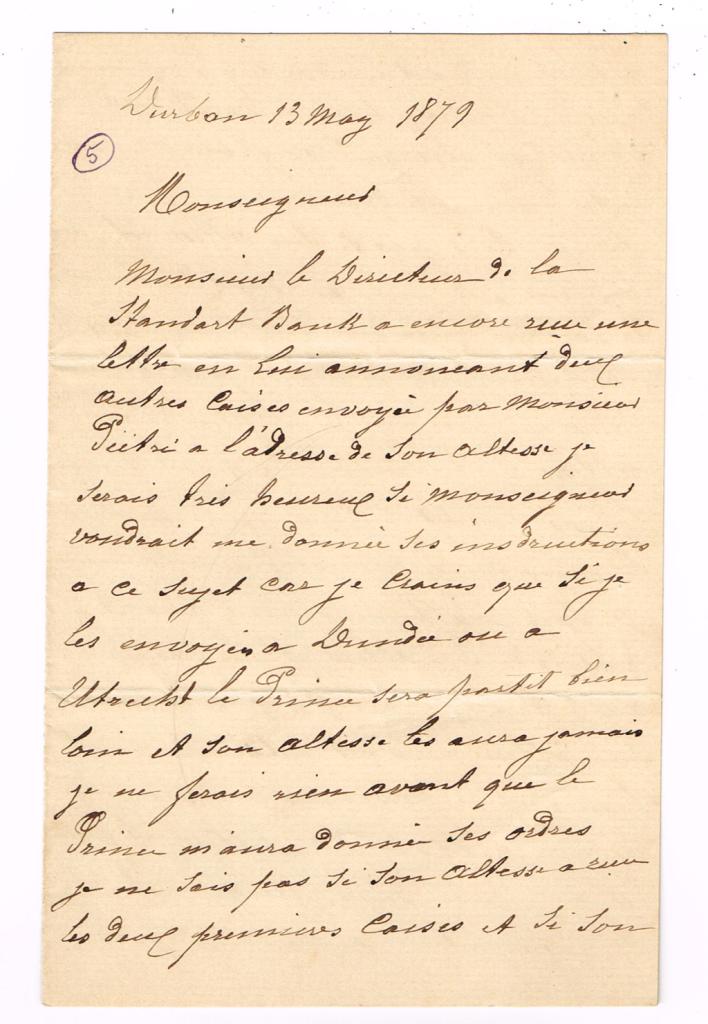 Durban 13 May 1879
5
Monseigneur
Monsieur le Directeur de la
Standart Bank a encore reue une
lettre en Lui annoncant deux
autres Caises envoyée par Monsieur
Piétri a l'adresse de Son Altesse je
serais très heureux Si Monseigneur
voudrait me donnée ses insdructions
a ce Sujet Car je Crains que Si je
les envoyés a Dundée ou a
Utrecht le Prince sera partit bien
loin et Son Altesse les aura jamais
je ne ferais rien avant que le
Prince m'aura donnée ses ordres
je ne Sais pas Si Son Altesse a reue
les deux premières Caises et Si Son